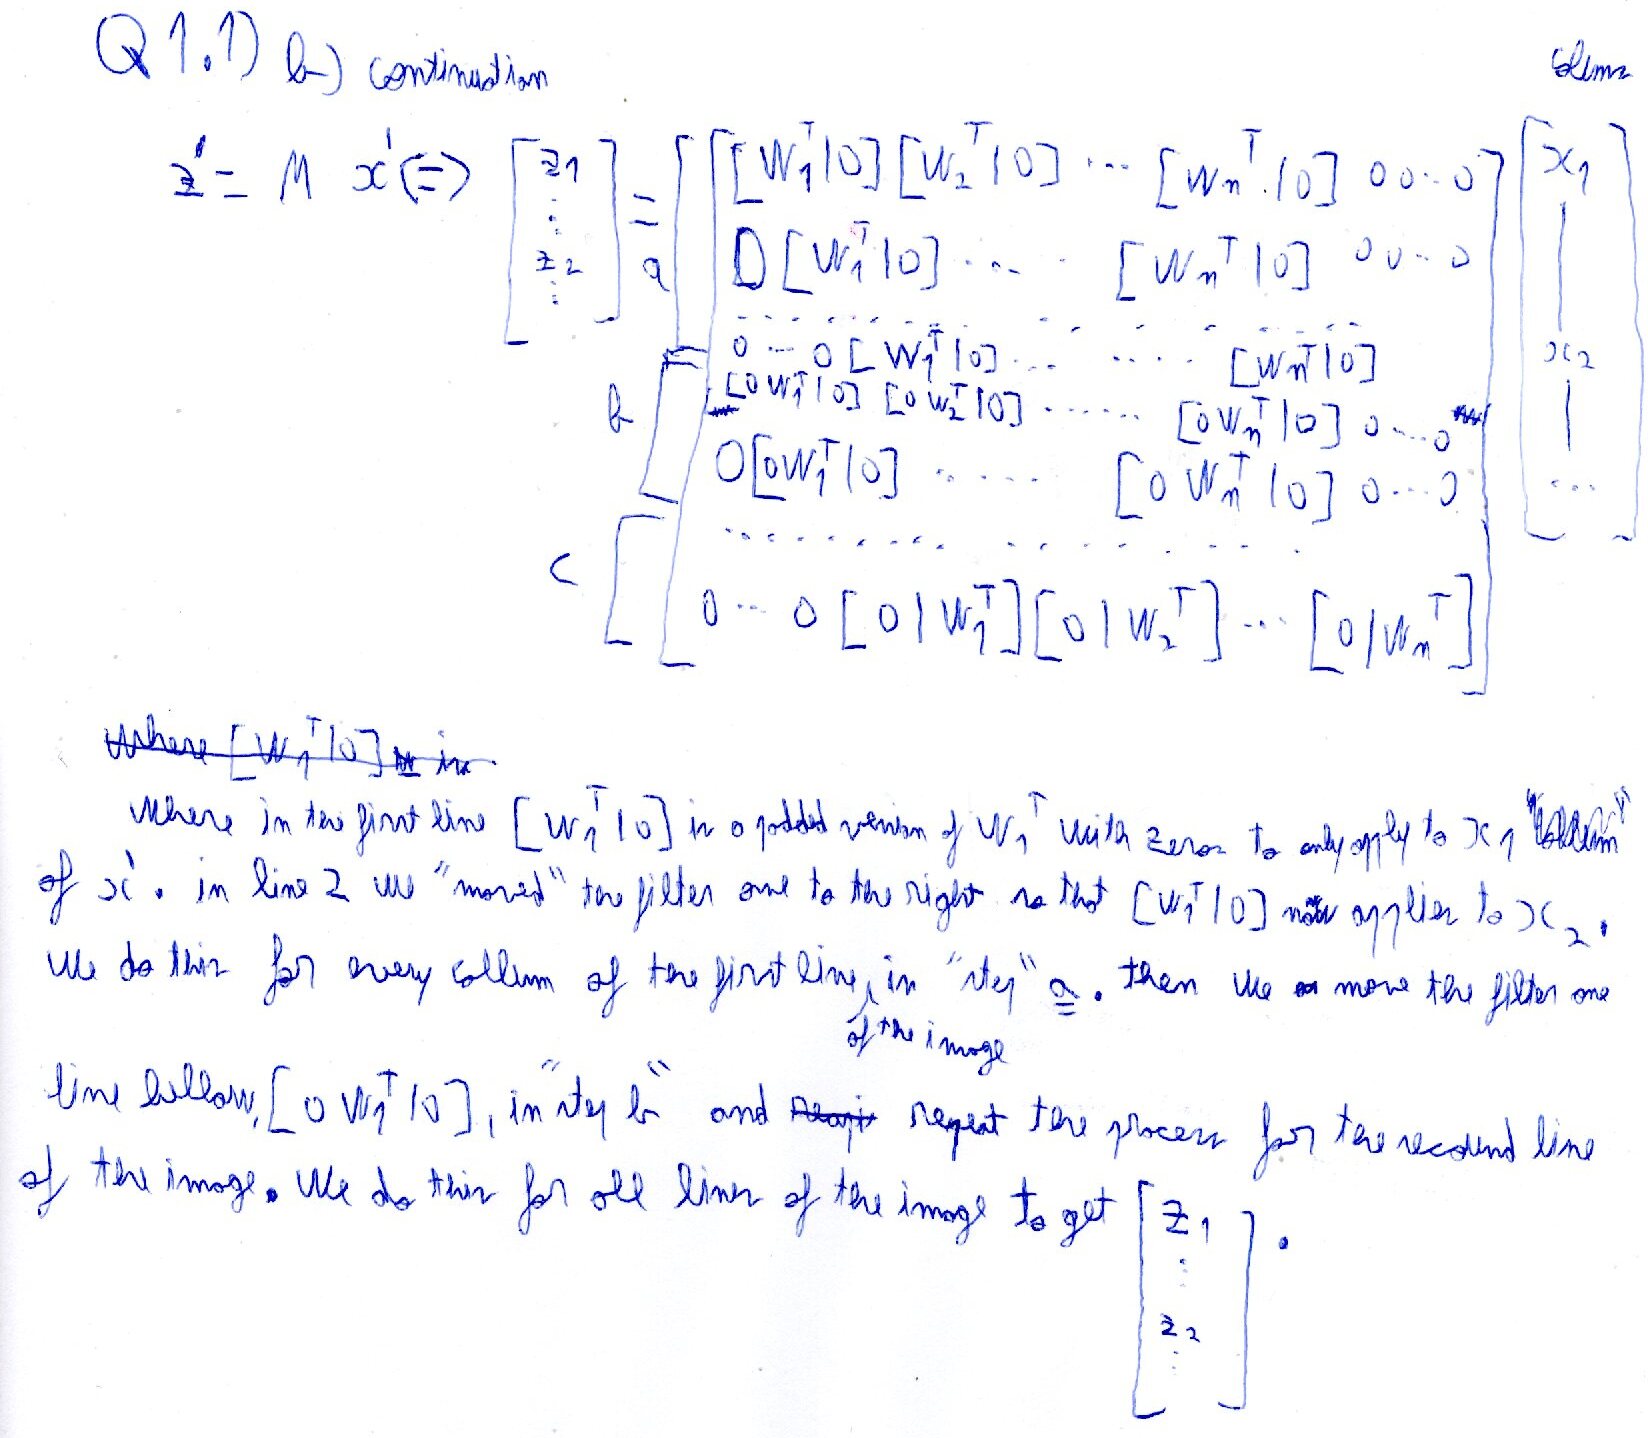 Q 1.1) b) continuation
z' = M x' (=) [z1 ⋮ z2 ⋮] = [ [W1^T|0] [W2^T|0] ... [Wn^T|0] 0 0 .. 0 ] [x1 | x2 | ...]
a 0 [W1^T|0] .... [Wn^T|0] 0 0 ... 0
. . . . . . . . . .
0 ... 0 [W1^T|0] ... .... [Wn^T|0]
b [0 W1^T|0] [0 W2^T|0] ...... [0 Wn^T|0] 0 ... 0
0 [0 W1^T|0] ...... [0 Wn^T|0] 0 ... 0
. . . . . . . . . .
c 0 ... 0 [0|W1^T] [0|W2^T] ... [0|Wn^T]
Where [W1^T|0] is
Where in the first line [W1^T|0] is a padded version of W1^T with zeros to only apply to x1 "collum"
of x'. in line 2 we "moved" the filter one to the right so that [W1^T|0] now applies to x2.
We do this for every collum of the first line, of the image in "step" a. then we move the filter one
line bellow, [0 W1^T|0], in "step b" and repeat the process for the second line
of the image. We do this for all lines of the image to get [z1 ⋮ z2 ⋮].